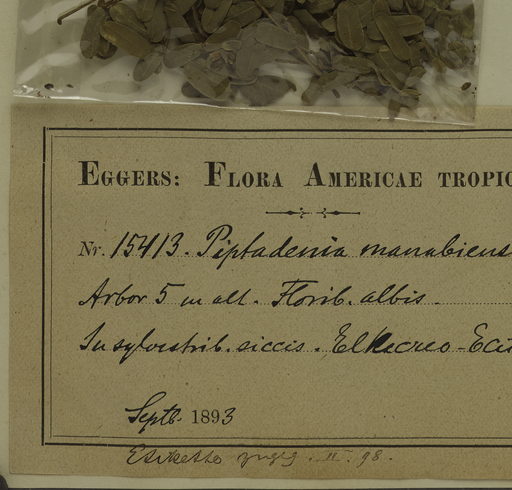 EGGERS: FLORA AMERICAE TROPIC
Nr. 15413. Piptadenia manabiens
Arbor 5 m alt. Florib. albis.
In sylvestrib. siccis. El Recreo - Ecu
Septb. 1893
Etikette II. 98.